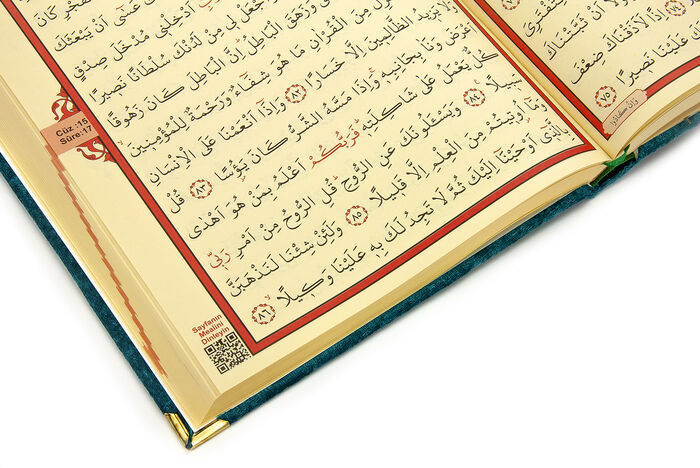 الْفَجْرِ كَانَ
عَسٰٓى اَنْ يَبْعَثَكَ
اَدْخِلْن۪ي مُدْخَلَ صِدْقٍ
جْعَلْ ل۪ي مِنْ لَدُنْكَ سُلْطَانًا نَص۪يرًا
وَزَهَقَ الْبَاطِلُ اِنَّ الْبَاطِلَ كَانَ زَهُوقًا
مِنَ الْقُرْاٰنِ مَا هُوَ شِفَٓاءٌ وَرَحْمَةٌ لِلْمُؤْمِن۪ينَ
وَلَا يَز۪يدُ الظَّالِم۪ينَ اِلَّا خَسَارًا ﴿٨٢﴾ وَاِذَٓا اَنْعَمْنَا عَلَى الْاِنْسَانِ
اَعْرَضَ وَنَاٰ بِجَانِبِه۪ وَاِذَا مَسَّهُ الشَّرُّ كَانَ يَؤُ۫سًا ﴿٨٣﴾ قُلْ
كُلٌّ يَعْمَلُ عَلٰى شَاكِلَتِه۪ فَرَبُّكُمْ اَعْلَمُ بِمَنْ هُوَ اَهْدٰى
سَب۪يلًا ﴿٨٤﴾ وَيَسْـَٔلُونَكَ عَنِ الرُّوحِ قُلِ الرُّوحُ مِنْ اَمْرِ رَبّ۪ي
وَمَٓا اُو۫ت۪يتُمْ مِنَ الْعِلْمِ اِلَّا قَل۪يلًا ﴿٨٥﴾ وَلَئِنْ شِئْنَا لَنَذْهَبَنَّ
بِالَّذ۪ٓي اَوْحَيْنَٓا اِلَيْكَ ثُمَّ لَا تَجِدُ لَكَ بِه۪ عَلَيْنَا وَك۪يلًا ﴿٨٦﴾
Cüz :15
Sûre:17
Sayfanın
Mealini
Dinleyin
اَنْ ثَبَّتْنَاكَ
اِذًا لَاَذَقْنَاكَ ضِعْفَ
عَلَيْنَا نَص۪يرًا ﴿٧٥﴾
وَاِنْ كَادُوا